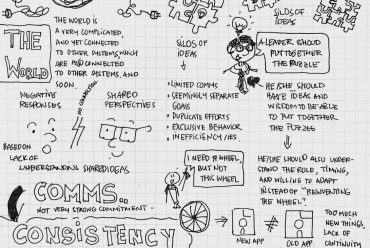 THE WORLD IS
A VERY COMPLICATED,
AND YET CONNECTED
TO OTHER SYSTEMS, WHICH
ARE ALSO CONNECTED
TO OTHER SYSTEMS, AND
SOON.
THE
WORLD
NEGATIVE
RESPONSES
NO CONNECTION
SHARED
PERSPECTIVES
BASED ON
LACK OF
UNDERSTANDING
SHARED IDEAS
COMMS..
NOT VERY STRONG COMMITMENT -
CONSISTENCY
SILOS OF
IDEAS
• LIMITED COMMS
• SEEMINGLY SEPARATE
GOALS
• DUPLICATE EFFORTS
• EXCLUSIVE BEHAVIOR
• INEFFICIENCY/IES
I NEED A WHEEL,
BUT NOT
THIS WHEEL
SILOS OF
IDEAS
A LEADER SHOULD
PUT TOGETHER
THE PUZZLE
HE/SHE SHOULD
HAVE IDEAS AND
WISDOM TO BE ABLE
TO PUT TOGETHER
THE PUZZLE
HE/SHE SHOULD ALSO UNDER-
STAND THE ROLE, TIMING,
AND WILLING TO ADAPT
INSTEAD OF "REINVENTING
THE WHEEL".
NEW APP
OLD APP
TOO MUCH
NEW THINGS,
LACK OF
CONTINUITY